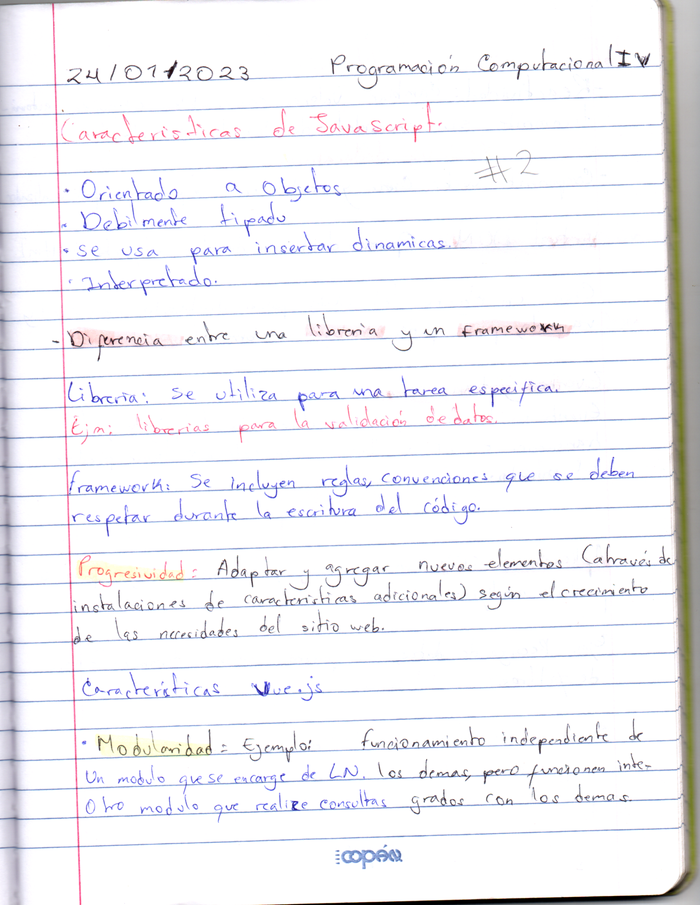 24/01/2023 Programación Computacional IV
Caracteristicas de Javascript.
#2
• Orientado a Objetos
• Debilmente tipado
• se usa para insertar dinamicas.
• Interpretado.
- Diferencia entre una libreria y un framework
Libreria: Se utiliza para una tarea especifica.
Ejm: librerias para la validación de datos.
framework: Se incluyen reglas, convenciones que se deben
respetar durante la escritura del código.
Progresividad = Adaptar y agregar nuevos elementos (através de
instalaciones de caracteristicas adicionales) según el crecimiento
de las necesidades del sitio web.
Características Vue.js
• Modularidad = Ejemplo: funcionamiento independiente de
Un modulo que se encarge de LN. los demas, pero funcionen inte-
Otro modulo que realize consultas grados con los demas.
copán